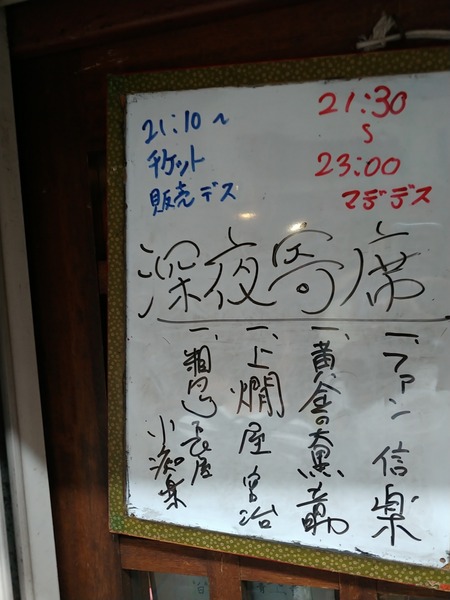 21:10～
チケット
販売デス
21:30
～
23:00
マデデス
深夜寄席
一、ファン 信楽
一、黄金の大黒 音助
一、上燗屋 宮治
一、粗忽長屋 小痴楽